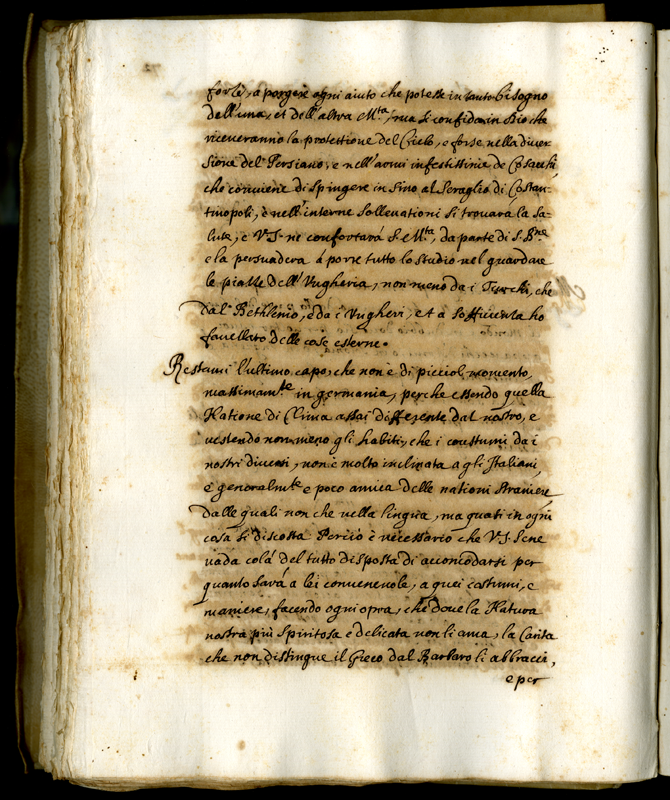 forle, a porgere ogni aiuto che potesse in tanto bisogno
dell'una, et dell'altra Mtà, ma si confida in Dio che
riceveranno la protettione del Cielo, e forse nella diver
sione del Persiano, e nell'armi infestissime de Cosacchi,
che conviene di spingere in sino al Seraglio di Costan-
tinopoli, e nell'interne sollevationi si trovarà la sa-
lute, e V.S. ne confortarà S. Mtà, da parte di S. Bne
e la persuaderà à porre tutto lo studio nel guardare
le piazze dell'Vngheria, non meno da i Turchi, che
dal Bethlemo, e da i Vngheri, et a sofficienza ho
favellato delle cose esterne.
Restami l'ultimo capo, che non è di picciol momento,
massimamte in germania, perche essendo quella
Natione di Clima assai differente dal nostro, e
vestendo non meno gli habiti, che i costumi da i
nostri diversi, non è molto inclinata a gli Italiani,
e generalmte e poco amica delle nationi straniere
dalle quali non che nella lingua, ma quasi in ogni
cosa si discosta Perciò è necessario che V.S. se ne
vada colà del tutto disposta di accomodarsi per
quanto sarà a lei convenevole, a quei costumi, e
maniere, facendo ogni opra, che dove la Natura
nostra più spiritosa e delicata non li ama, la Carità
che non distingue il Greco dal Barbaro li abbracci,
e per